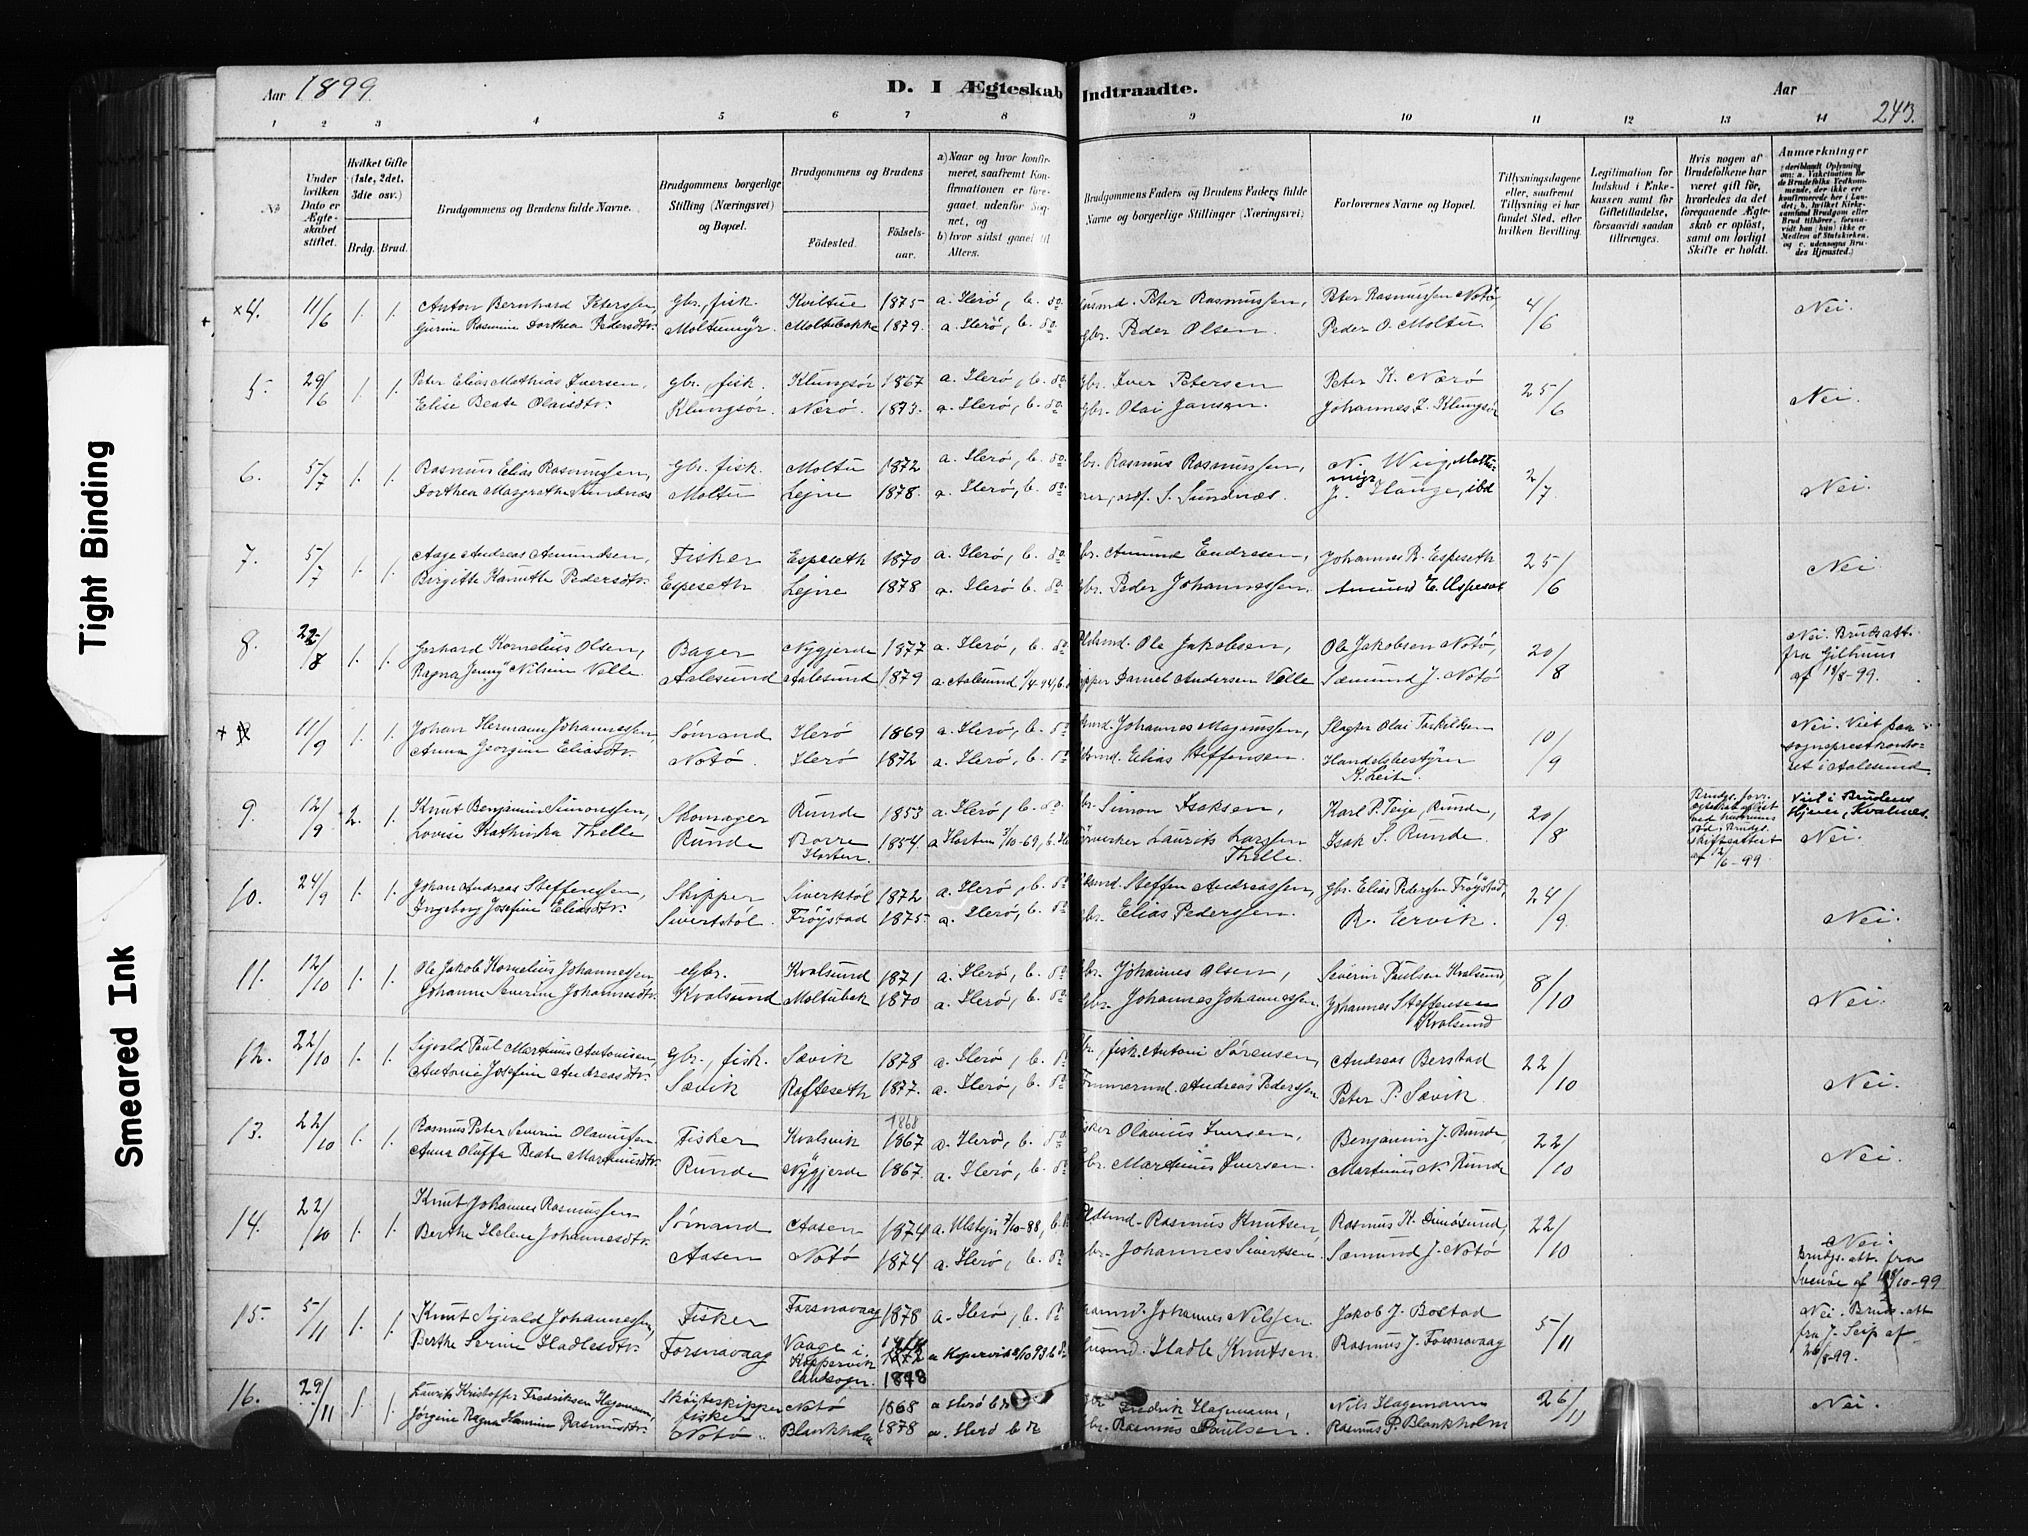 Aar 1899.
D. I Ægteskab Indtraadte.
Aar
243.
1 2 3 4 5 6 7 8 9 10 11 12 13 14
No
Under hvilken Dato er Ægteskabet stiftet.
Hvilket Gifte (1ste, 2det, 3die osv.)
Brdg. Brud.
Brudgommens og Brudens fulde Navne.
Brudgommens borgerlige Stilling (Næringsvei) og Bopæl.
Brudgommens og Brudens
Födested.
Födselsaar.
a) Naar og hvor konfirmeret, saafremt Konfirmationen er foregaaet udenfor Sognet, og
b) hvor sidst gaaet til Alters.
Brudgommens Faders og Brudens Faders fulde Navne og borgerlige Stillinger (Næringsvei)
Forlovernes Navne og Bopæl.
Tillysningsdagene eller, saafremt Tillysning ei har fundet Sted, efter hvilken Bevilling.
Legitimation for Indskud i Enkekassen samt for Giftetilladelse, forsaavidt saadan tiltrænges.
Hvis nogen af Brudefolkene har været gift för, hvorledes da det foregaaende Ægteskab er oplöst, samt om lovligt Skifte er holdt.
Anmærkninger
×4. 11/6 1. 1. Anton Bernhard Peterssen, gbr., fisk. Kviltue 1875 a. Herø, b. do. Husmd. Peter Rasmussen, Peter Rasmussen Notø, 4/6 Nei.
Gurine Rasmine Dorthea Pedersdtr. Moltumyr Moltubakke 1879. a. Herø, b. do gbr. Peder Olsen Peder O. Moltu
5. 29/6 1. 1. Peter Elias Mathias Iversen, gbr., fisk. Klungsør 1867 a. Herø, b. do. gbr. Iver Petersen Peter K. Nærø 25/6 Nei.
Elise Beate Olaisdtr. Klungsør. Nærø. 1873. a. Herø, b. do gbr. Olai Jansen. Johannes I. Klungsør
6. 5/7 1. 1. Rasmus Elias Rasmussen, gbr. fisk. Moltu 1872 a. Herø, b. do. gbr. Rasmus Rasmussen, N. Wiig, Moltumyr 2/7 Nei.
Dorthea Margrethe Sundnæs Moltu Lejne 1878. a. Herø, b. do S. Sundnæs. J. Hauge, ibd
7. 5/7 1. 1. Aage Andreas Amundsen, Fisker Espeseth 1870 a. Herø, b. do. gbr. Amund Endresen, Johannes R. Espeseth 25/6 Nei
Birgitte Hanette Pedersdtr. Espeseth Lejne 1878 a. Herø b. do gbr. Peder Johannessen. Amund E. Espeset
8. 22/8 1. 1. Gerhard Kornelius Olsen, Bager Nygjerde 1877 a. Herø, b. do Ole Jakobsen, Ole Jakobsen Notø, 20/8 Nei. Brudeatt. fra Gilhuus af 18/8-99.
Ragna Jenny Nilsine Velle Aalesund Aalesund 1879 a. Aalesund 1/4-94, b. Skipper Daniel Andersen Velle Sæmund J. Notø
11/9 1. 1. Johan Hermann Johannessen, Sømand Herø 1869 a. Herø, b. do Johannes Magnussen, Slagter Olai Torkildsen 10/9 Nei. Viet paa sogneprestkontoret i Aalesund.
Anna Georgine Eliasdtr. Notø Herø 1872 a. Herø, b. do Elias Steffensen. Handelsbestyrer K. Leite.
9. 12/9 2. 1. Knut Benjamin Simonssen, Skomager Runde 1853 a. Herø, b. do. gbr. Simon Isaksen, Karl P. Teige, Runde, 20/8 Viet i Brudens Hjem, Kvalnes. Nei.
Lovise Kathinka Thelle Runde Borre Horten. 1854. a Horten 3/10-69, b. Laurits Larssen Thelle. Isak S. Runde skifteattest af 12/6-99
10. 24/9 1. 1. Johan Andreas Steffenssen, Skipper Siverktøl 1872 a. Herø, b. do Steffen Andreassen, gbr. Elias Pederssen Frøystad, 24/9 Nei.
Ingeborg Josefine Eliasdtr. Sivertstøl Frøystad 1875. a. Herø, b. do gbr. Elias Pederssen. R. Eervik.
11. 12/10 1. 1. Ole Jakob Kornelius Johannessen Gbr. Kvalsund 1871 a. Herø, b. do gbr. Johannes Olsen, Severin Paulsen Kvalsund, 8/10 Nei.
Johanne Severine Johannesdtr. Kvalsund Moltubak 1870 a. Herø, b. do Gbr. Johannes Johannessen. Johannes Steffensen Kvalsund
12. 22/10 1. 1. Sigvald Paul Martinus Antonisen, gbr., fisk. Sævik 1878 a. Herø, b. do gbr., fisk. Antoni Sørensen, Andreas Berstad 22/10 Nei.
Antoni Josefine Andreasdtr. Sævik Rafteseth 1877. a. Herø, b. do Tømmermd. Andreas Pederssen Peter P. Sævik.
13. 22/10 1. 1. Rasmus Peter Severin Olaviussen Fisker Kvalsvik 1868 1867 a. Herø, b. do. Fisker Olavius Iversen, Benjamin J. Runde, 22/10 Nei.
Anna Oluffa Beate Martinusdtr. Runde Nygjerde 1867. a. Herø, b. do gbr. Martinius Iversen. Martinius N. Runde
14. 22/10 1. 1. Knut Johannes Rasmussen Sømand Aasen 1874 a. Ulstejn 7/10-88, b. Rasmus Knutsen, Rasmus K. Dimøsund, 22/10 Nei. Brudgs. att. fra Svenøe af 18/10-99
Berthe Helene Johannesdtr. Aasen Notø 1874 a. Herø, b. do gbr. Johannes Sivertsen Sæmund J. Notø
15. 5/11 1. 1. Knut Sigvald Johannessen, Fisker Forsnavaag 1878 a. Herø, b. do Johannes Nilssen Jakob J. Bolstad 5/11 Nei. Brude. att fra J. Seip af 26/8-99.
Berthe Serine Hadlesdtr. Forsnavaag Vaage i Kopervik landsogn. 1872 1878 a Kopervik 2/10 93 b do Husmd. Hadle Knutsen. Rasmus J. Forsnavaag
16. 29/11 1. 1. Laurits Kristoffer Fredriksen Hagemann, Skøiteskipper, fisker Notø 1868 a Herø b do Fredrik Hagemann, Nils Hagemann 26/11 Nei.
Jørgine Ragna Hansine Rasmusdtr. Notø. Blankholm 1878 a. Herø b do gbr. Rasmus Paulsen. Rasmus P. Blankholm
Tight Binding
Smeared Ink